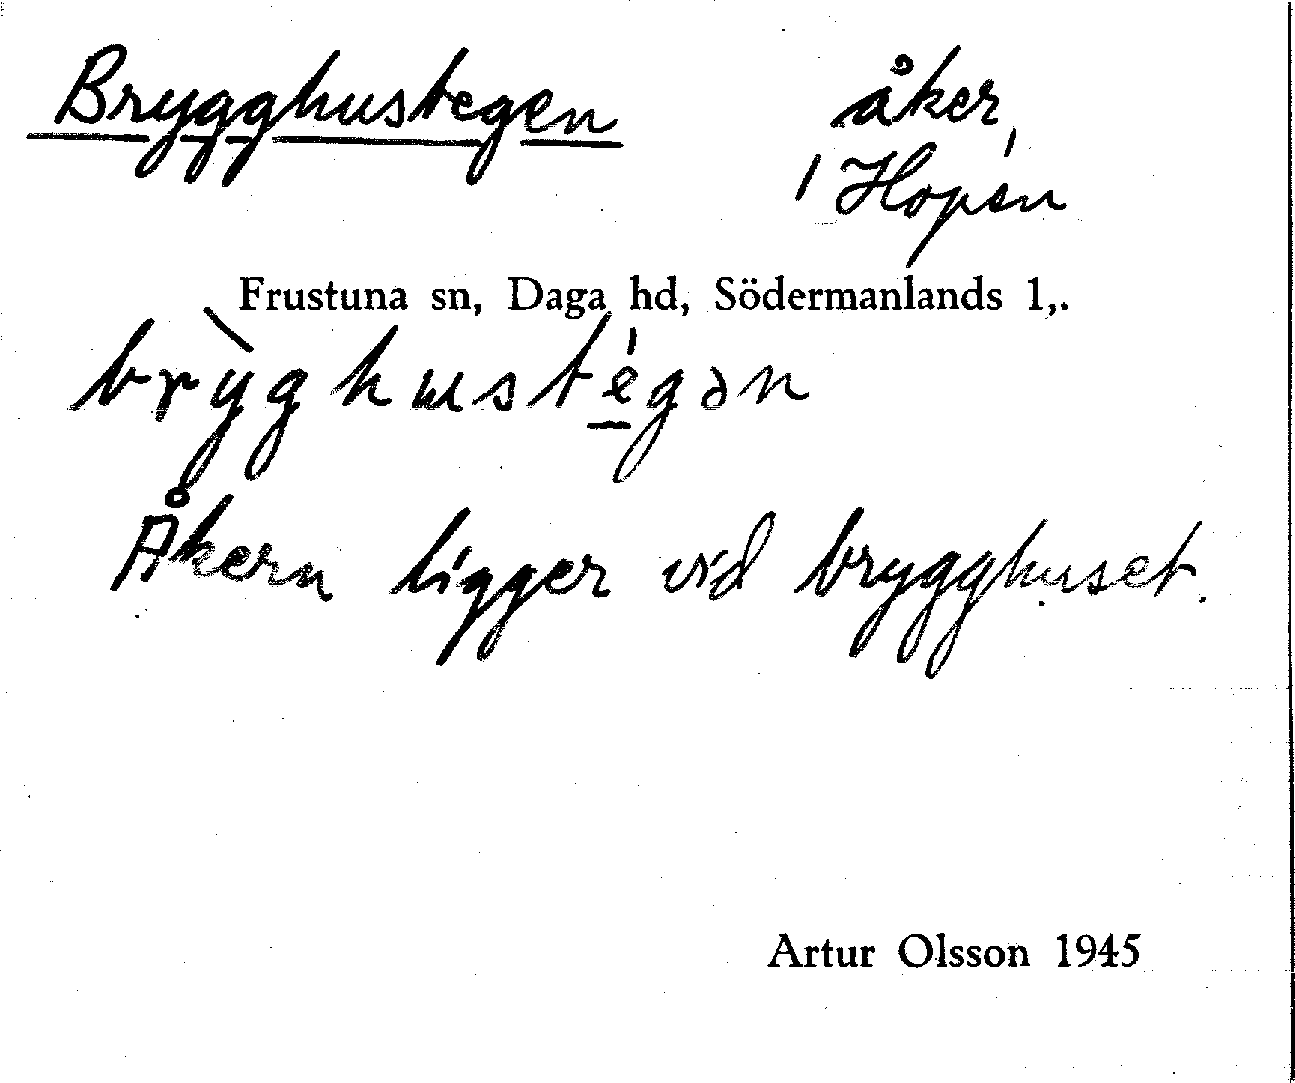 Brygghustegen åker,
/ Hopen
Frustuna sn, Daga hd, Södermanlands l,.
brỳghɯstégən
Åkern ligger vid brygghuset.
Artur Olsson 1945